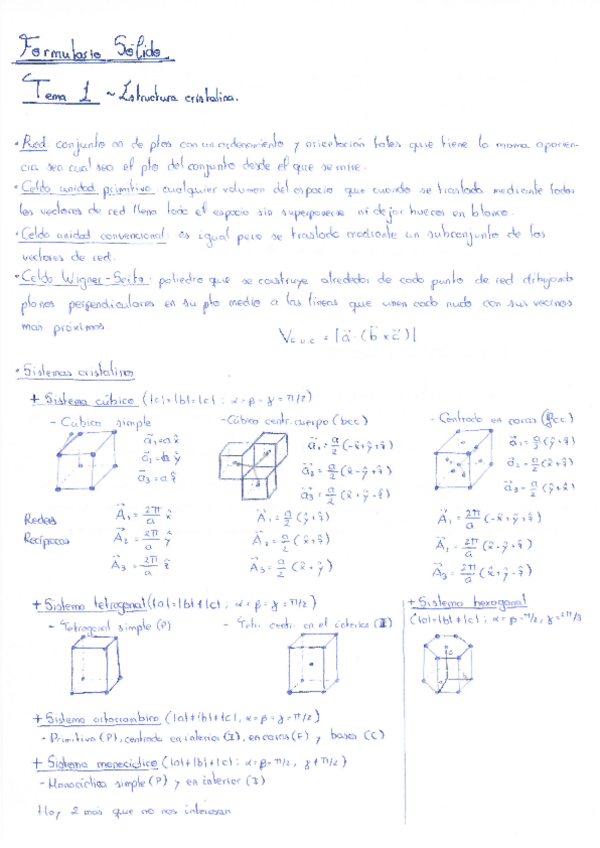 Formulario Sólido
Tema 1 ~ Estructura cristalina.
• Red: conjunto ∞ de ptos con un ordenamiento y orientación tales que tiene la misma aparien-
cia sea cual sea el pto del conjunto desde el que se mire.
• Celda unidad primitiva: cualquier volumen del espacio que cuando se traslada mediante todos
los vectores de red llena todo el espacio sin superponerse ni dejar huecos en blanco.
• Celda unidad convencional: es igual pero se traslada mediante un subconjunto de los
vectores de red.
• Celda Wigner-Seitz: poliedro que se construye alrededor de cada punto de red dibujando
planos perpendiculares en su pto medio a las líneas que unen cada nudo con sus vecinos
más próximos
V c.u.c = |a⃗ · (b⃗ × c⃗)|
• Sistemas cristalinos
+ Sistema cúbico (|a|=|b|=|c| ; α=β=γ=π/2)
- Cúbico simple
a⃗₁ = a x̂
a⃗₂ = a ŷ
a⃗₃ = a ẑ
- Cúbico centr. cuerpo (bcc)
a⃗₁ = a/2 (-x̂+ŷ+ẑ)
a⃗₂ = a/2 (x̂-ŷ+ẑ)
a⃗₃ = a/2 (x̂+ŷ-ẑ)
- Centrado en caras (fcc)
a⃗₁ = a/2 (ŷ+ẑ)
a⃗₂ = a/2 (x̂+ẑ)
a⃗₃ = a/2 (ŷ+x̂)
Redes
Recíprocas
A⃗₁ = 2π/a x̂
A⃗₂ = 2π/a ŷ
A⃗₃ = 2π/a ẑ
A⃗₁ = a/2 (ŷ+ẑ)
A⃗₂ = a/2 (x̂+ẑ)
A⃗₃ = a/2 (x̂+ŷ)
A⃗₁ = 2π/a (-x̂+ŷ+ẑ)
A⃗₂ = 2π/a (x̂-ŷ+ẑ)
A⃗₃ = 2π/a (x̂+ŷ-ẑ)
+ Sistema tetragonal (|a|=|b|≠|c| ; α=β=γ=π/2)
- Tetragonal simple (P)
- Tetr. centr. en el interior (I)
+ Sistema hexagonal
(|a|=|b|≠|c| ; α=β=π/2, γ=2π/3)
+ Sistema ortorrómbico (|a|≠|b|≠|c|, α=β=γ=π/2)
- Primitiva (P), centrada en interior (I), en caras (F) y bases (C)
+ Sistema monoclínico (|a|≠|b|≠|c| ; α=β=π/2, γ≠π/2)
- Monoclínica simple (P) y en interior (I)
Hay 2 más que no nos interesan